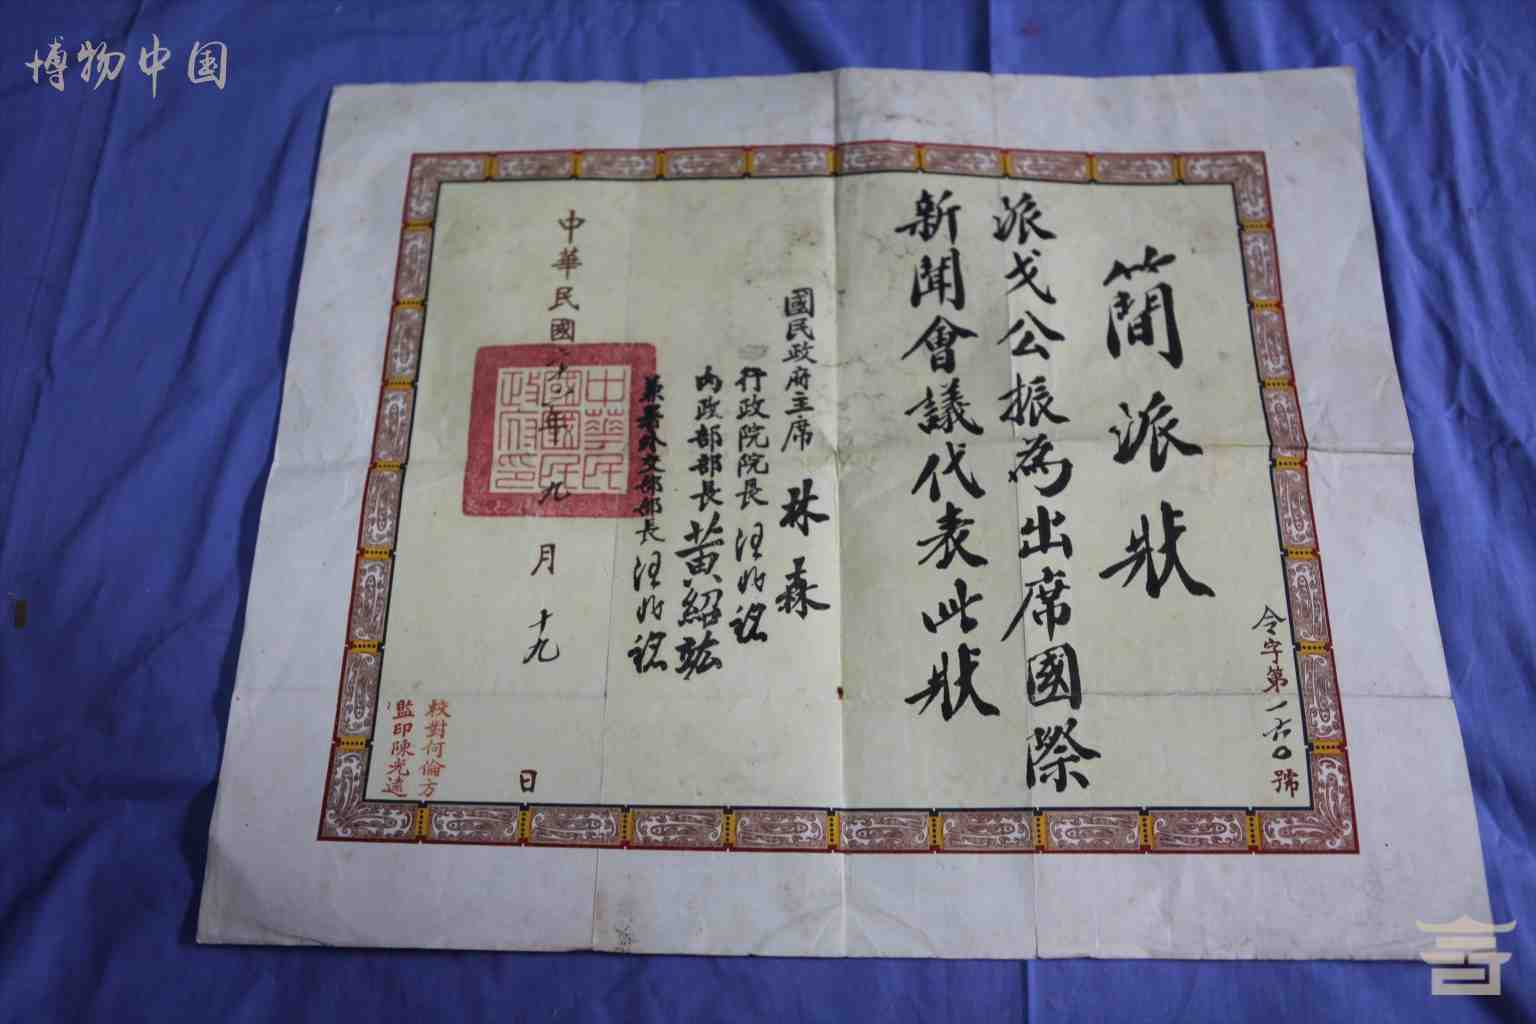 博物中国
簡派狀
派戈公振為出席國際
新聞會議代表此狀
國民政府主席 林森
行政院院長 汪兆銘
內政部部長 黃紹竑
兼署外交部部長 汪兆銘
中華民國
年九月十九日
中華民國國民政府印
令字第一六〇號
校對何倫方
監印陳光遠